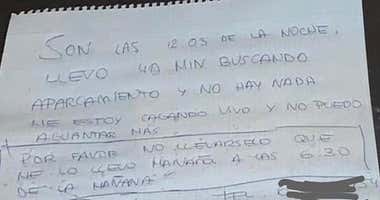 SON LAS 12 05 DE LA NOCHE,
LLEVO 40 MIN BUSCANDO
APARCAMIENTO Y NO HAY NADA
ME ESTOY CAGANDO VIVO Y NO PUEDO
AGUANTAR MAS.
POR FAVOR NO LLEVARSELO QUE
ME LO LLEVO MAÑANA A LAS 6:30
DE LA MAÑANA
TEL